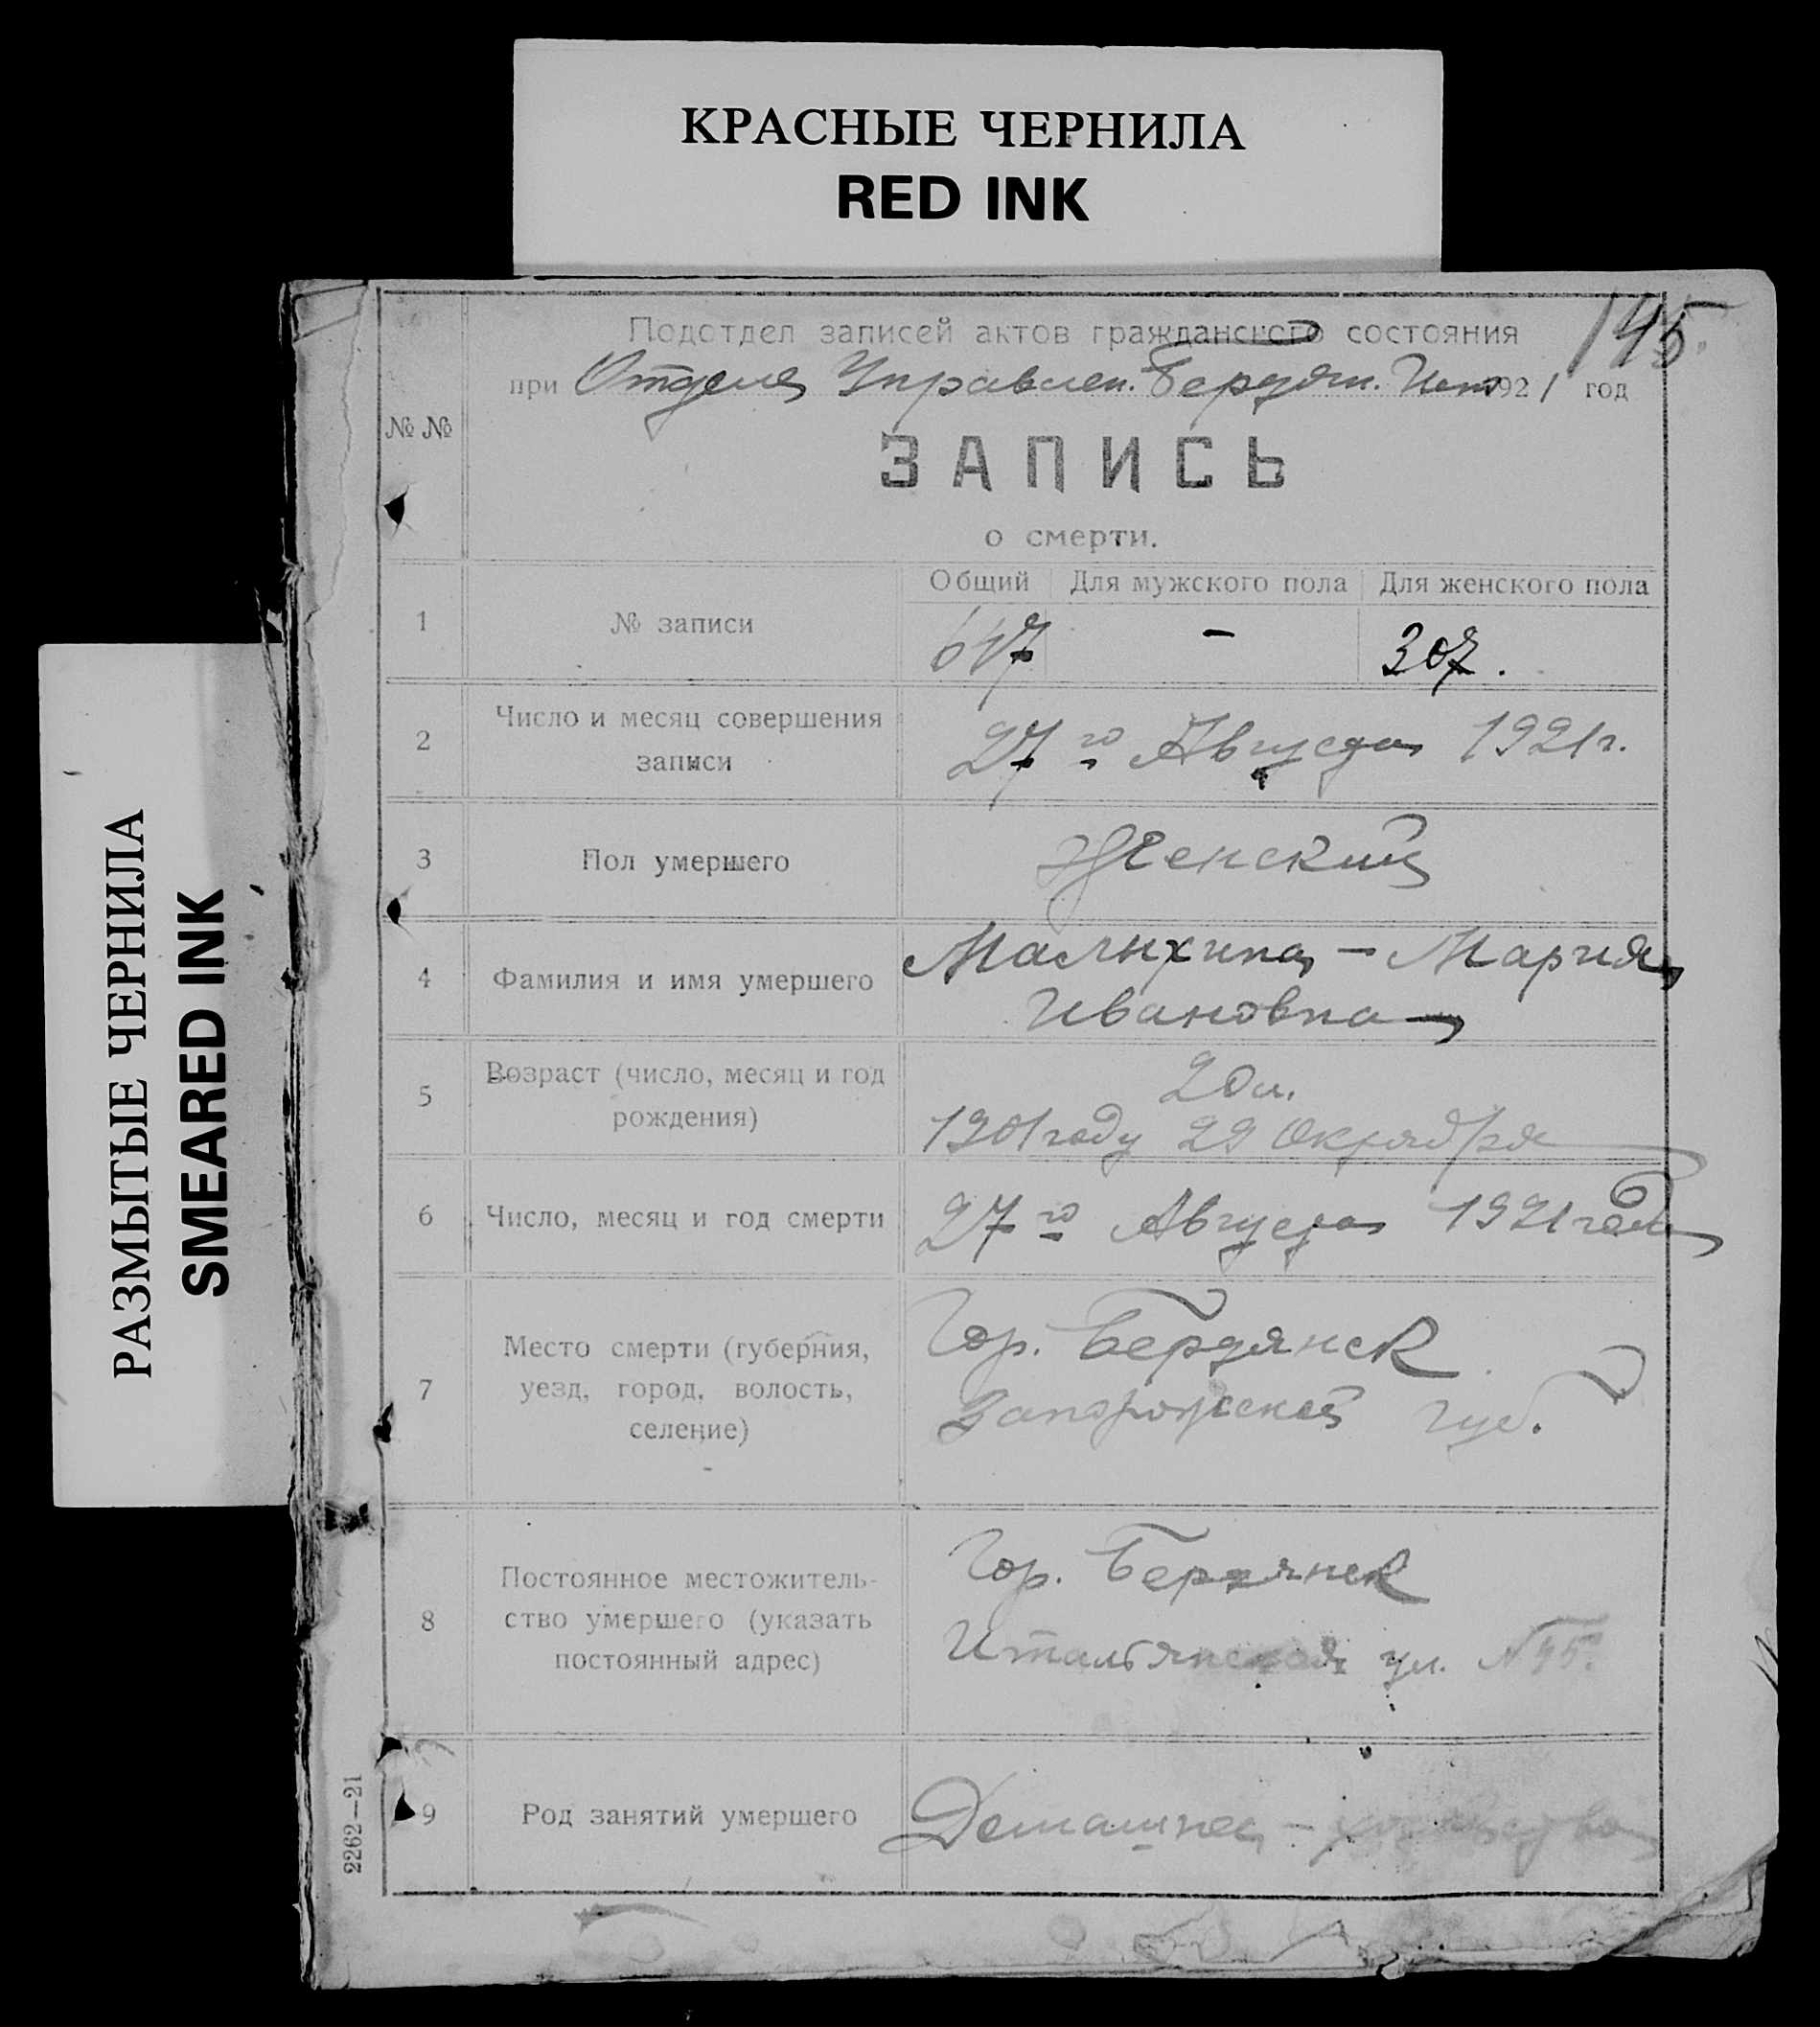 КРАСНЫЕ ЧЕРНИЛА
RED INK
РАЗМЫТЫЕ ЧЕРНИЛА
SMEARED INK
145.
Подотдел записей актов гражданского состояния
при Отдела Управлен. Бердян. 1921 год
№ №
ЗАПИСЬ
о смерти.
Общий Для мужского пола Для женского пола
1 № записи 617 - 307.
2 Число и месяц совершения
записи
27го Августа 1921г.
3 Пол умершего Женский
4 Фамилия и имя умершего
Малыхина - Мария
Ивановна
5 Возраст (число, месяц и год
рождения)
20 л.
1901 году 22 Октября
6 Число, месяц и год смерти 27го Августа 1921 года
7 Место смерти (губерния,
уезд, город, волость,
селение)
Гор. Бердянск
Запорожской губ.
8 Постоянное местожитель-
ство умершего (указать
постоянный адрес)
Гор. Бердянск
Итальянская ул.
9 Род занятий умершего Домашнее - хозяйство
2262—21